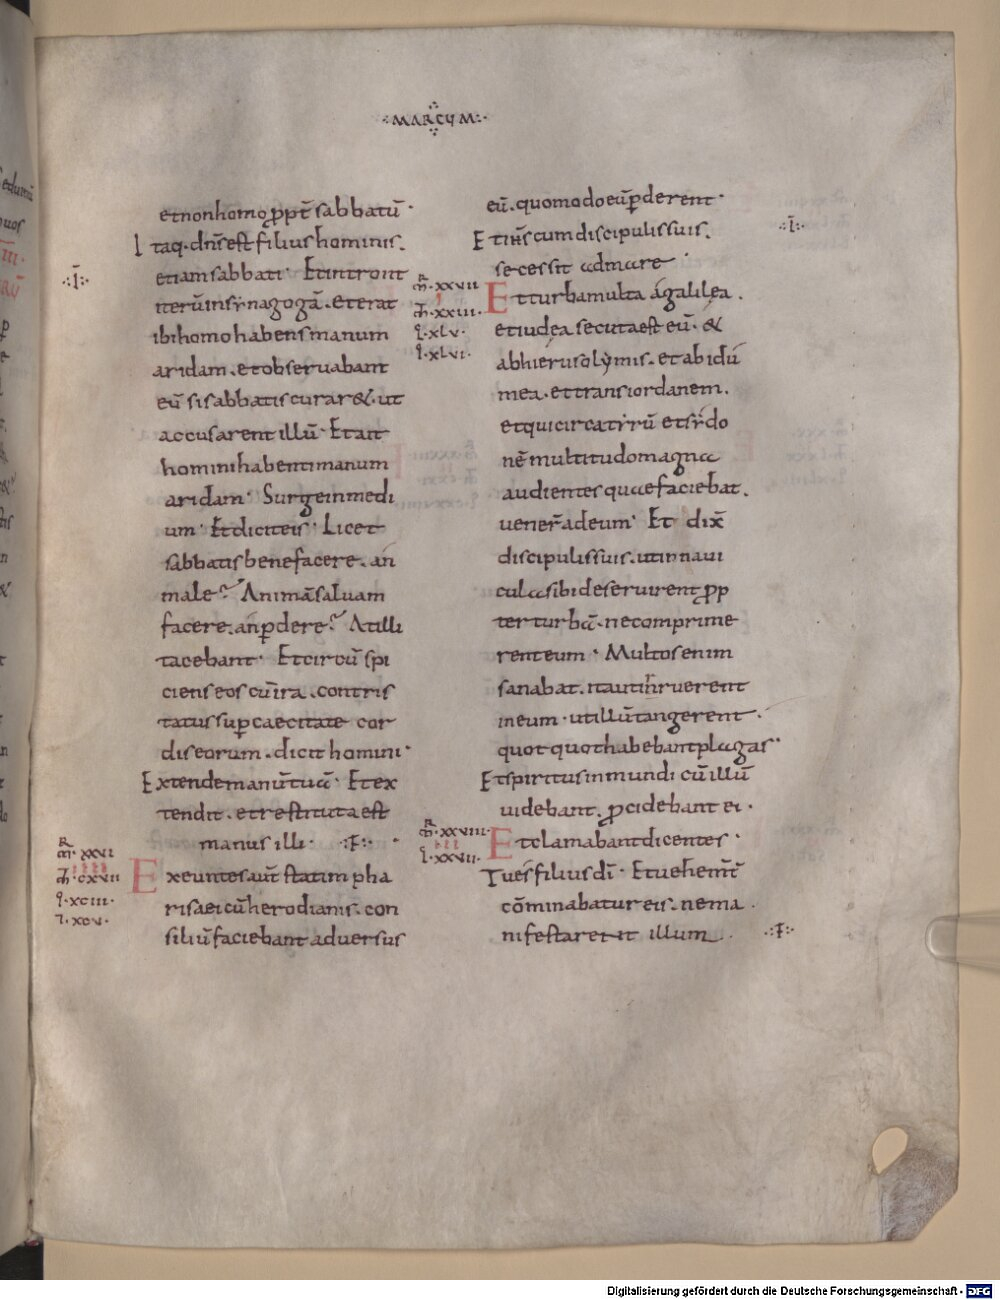 ·:MARCUM:·
et non homo ꝓpt̄ sabbatū·
Itaq· dn̄s est filius hominis.
etiam sabbati· Et introiit
iterū in synagogā. et erat
ibi homo habens manum
aridam. et obseruabant
eū si sabbatis curar&. ut
accusarent illū· Et ait
homini habenti manum
aridam· Surge in medi
um· Et dicit eis· Licet
sabbatis bene facere. an
male? Animā saluam
facere. an ꝑdere? At illi
tacebant· Et circū spi
ciens eos cū ira. contris
tatus suꝑ caecitate cor
dis eorum. dicit homini·
Extende manū tuā· Et ex
tendit. et restituta est
manus illi·
Exeuntes aut̄ statim pha
risaei cū herodianis. con
siliū faciebant aduersus
·I·
XXVI
CXVII
XCIII·
XCV·
eū. quomodo eū ꝑderent·
Et ih̄s cum discipulis suis.
secessit ad mare·
Et turba multa a galilęa.
et iudea secuta est eū. &
ab hierusolymis. et ab idu
mea. et trans iordanem.
et qui circa tyrū et sydo
nē multitudo magna
audientes quae faciebat.
uener̄ ad eum· Et dix̄
discipulis suis. ut in naui
cula sibi deseruirent ꝓp
ter turbā. ne comprime
rent eum· Multos enim
sanabat. ita ut irruerent
in eum· ut illū tangerent·
quot quot habebant plagas·
Et spiritus inmundi cū illū
uidebant. ꝓcidebant ei·
Et clamabant dicentes·
Tu es filius dī· Et uehem̄t̄
cōminabatur eis. ne ma
nifestarent illum.
·I·
XXVII
XXIII·
XLV·
XLVI·
XXVIII·
XXVII·
Digitalisierung gefördert durch die Deutsche Forschungsgemeinschaft - DFG